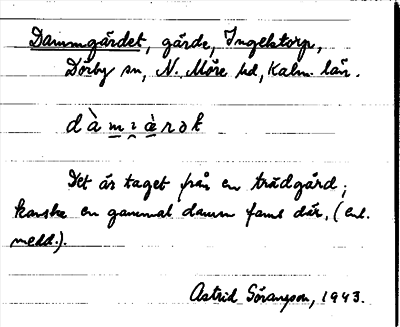 Dammgärdet, gärde, Ingelstorp,
Dörby sn, N. Möre hd, Kalm. län.
dàmɿæ̀rək
Det är taget från en trädgård;
kanske en gammal damm fanns där, (enl.
medd.).
Astrid Göransson, 1943.